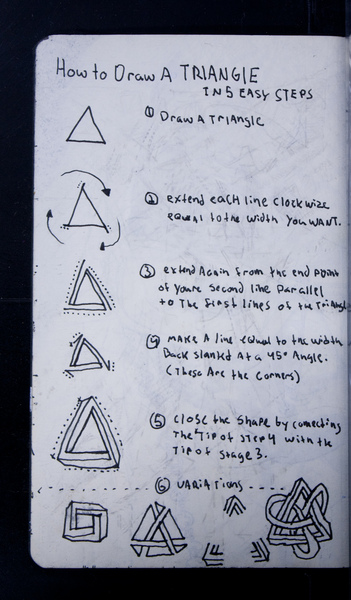 How to Draw A TRIANGLE
IN 5 EASY STEPS
① Draw A Triangle
② extend each line clockwize
equal to the width you want.
③ extend Again from the end point
of youre second line parallel
to the first lines of the triangle
④ Make A line equal to the width
Back slanted At a 45° Angle.
(These Are the corners)
⑤ Close the shape by connecting
the Tip of step 4 with the
Tip of stage 3.
⑥ Variations